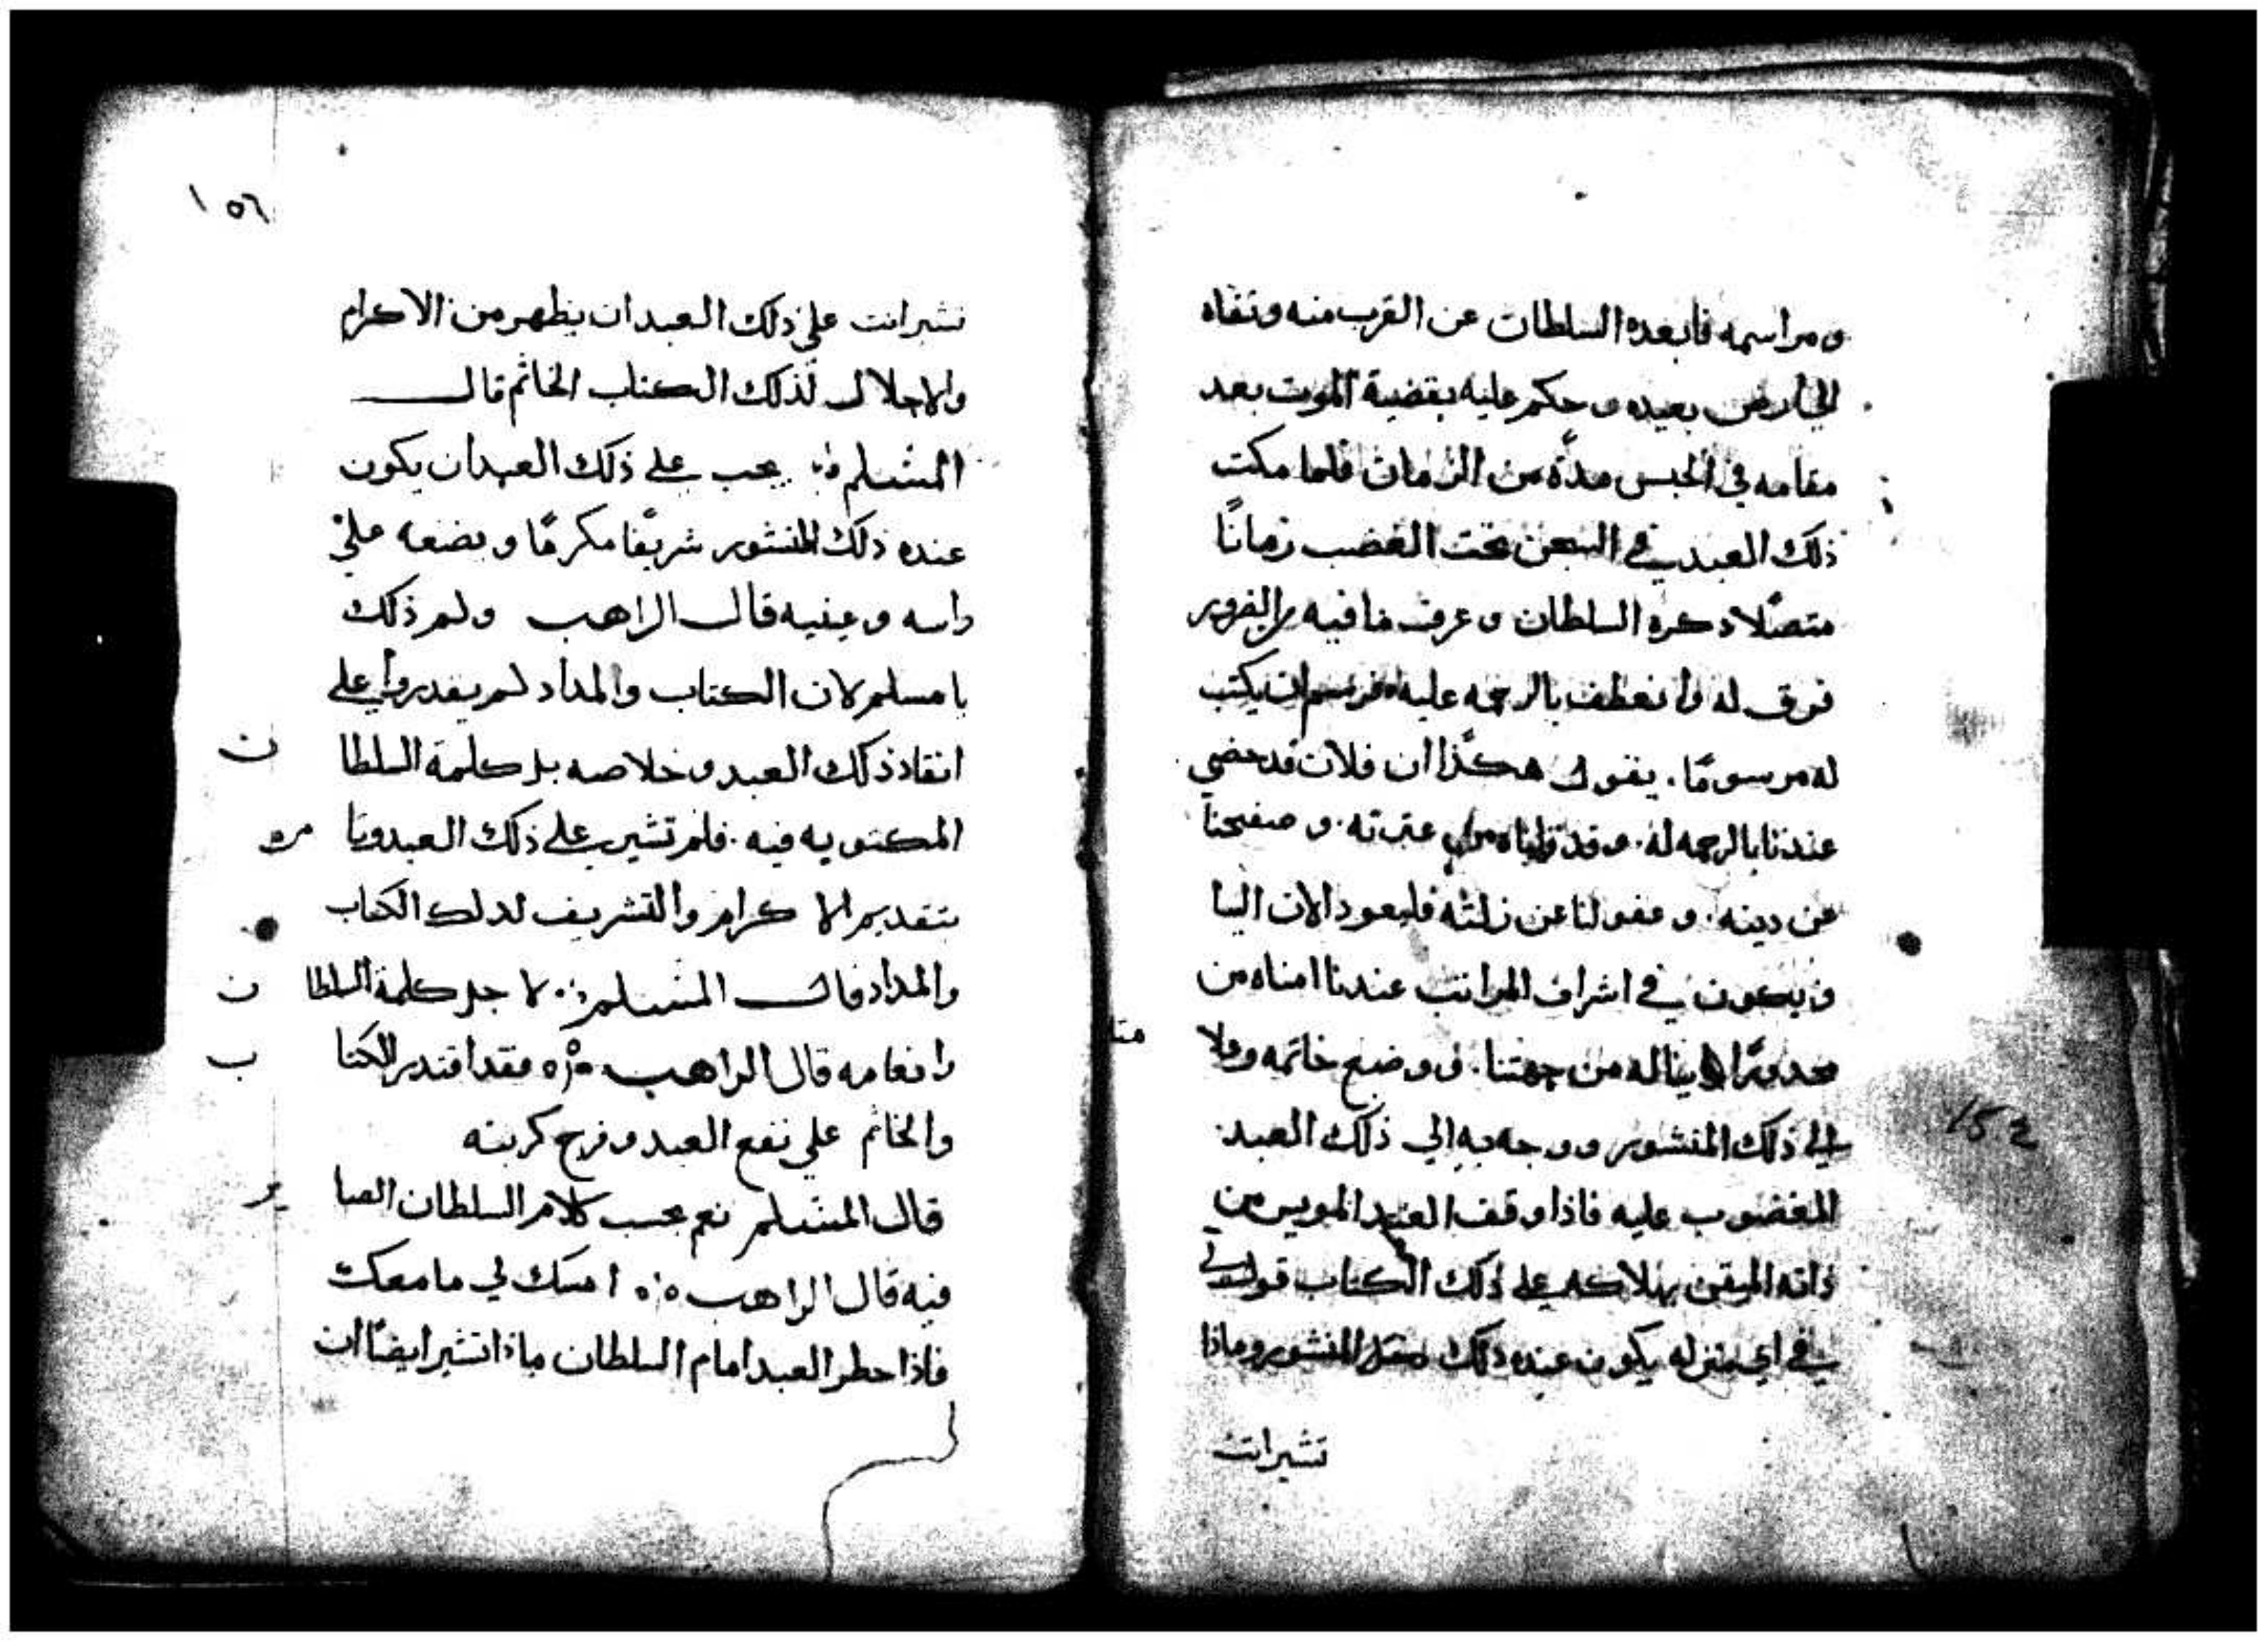 ومراسمه فابعده السلطان عن القرب منه ونفاه
الي ارض بعيده وحكم عليه بقضية الموت بعد
مقامه في الحبس مدّة من الزمان فلما مكت
ذلك العبد في السجن تحت الغضب زمانًا
متصلا ذكره السلطان وعرف ما فيه من
فرق له وانعطف بالرحمه عليه يكتب
له مرسومًا. يقول هكذا ان فلان قد حضي
عندنا بالرحمه له. وقد عترته. وصفحنا
عن دينه. وعفو لنا عن زلته فليعود الان الينا
ويكون في اشراف المراتب عندنا امناه من
محدورًا يناله من جهتنا. ووضع خاتمه
علي ذلك المنشور ووجه به الي ذلك العبد
المغضوب عليه فاذا وقف العبد المويس من
ذاته الميقن بهلاكه علي ذلك الكتاب قول لي
في اي منزله يكون عنده ذلك المنشور وماذا
تشير انت
١٥٦
تشير انت علي ذلك العبد ان يظهر من الاكرام
والاجلال لذلك الكتاب الخاتم قال
المسلم يجب علي ذلك العبد ان يكون
عنده ذلك المنشور شريفًا مكرمًا ويضعه علي
راسه وعينيه قال الراهب ولم ذلك
يا مسلم لان الكتاب والمداد لم يقدروا علي
انقاذ ذلك العبد وخلاصه بل كلمة السلطان
المكتوبه فيه. فلم تشير علي ذلك العبد
بتقديم الاكرام والتشريف لدلك الكتاب
والمداد قال المسلم لاجل كلمة السلطان
وانعامه قال الراهب فقد اقتدر الكتاب
والخاتم علي نفع العبد وفرج كربته
قال المسلم نعم بحسب كلام السلطان الصاير
فيه قال الراهب امسك لي ما معك
فاذا حطر العبد امام السلطان ماذا تشير ايضًا ان